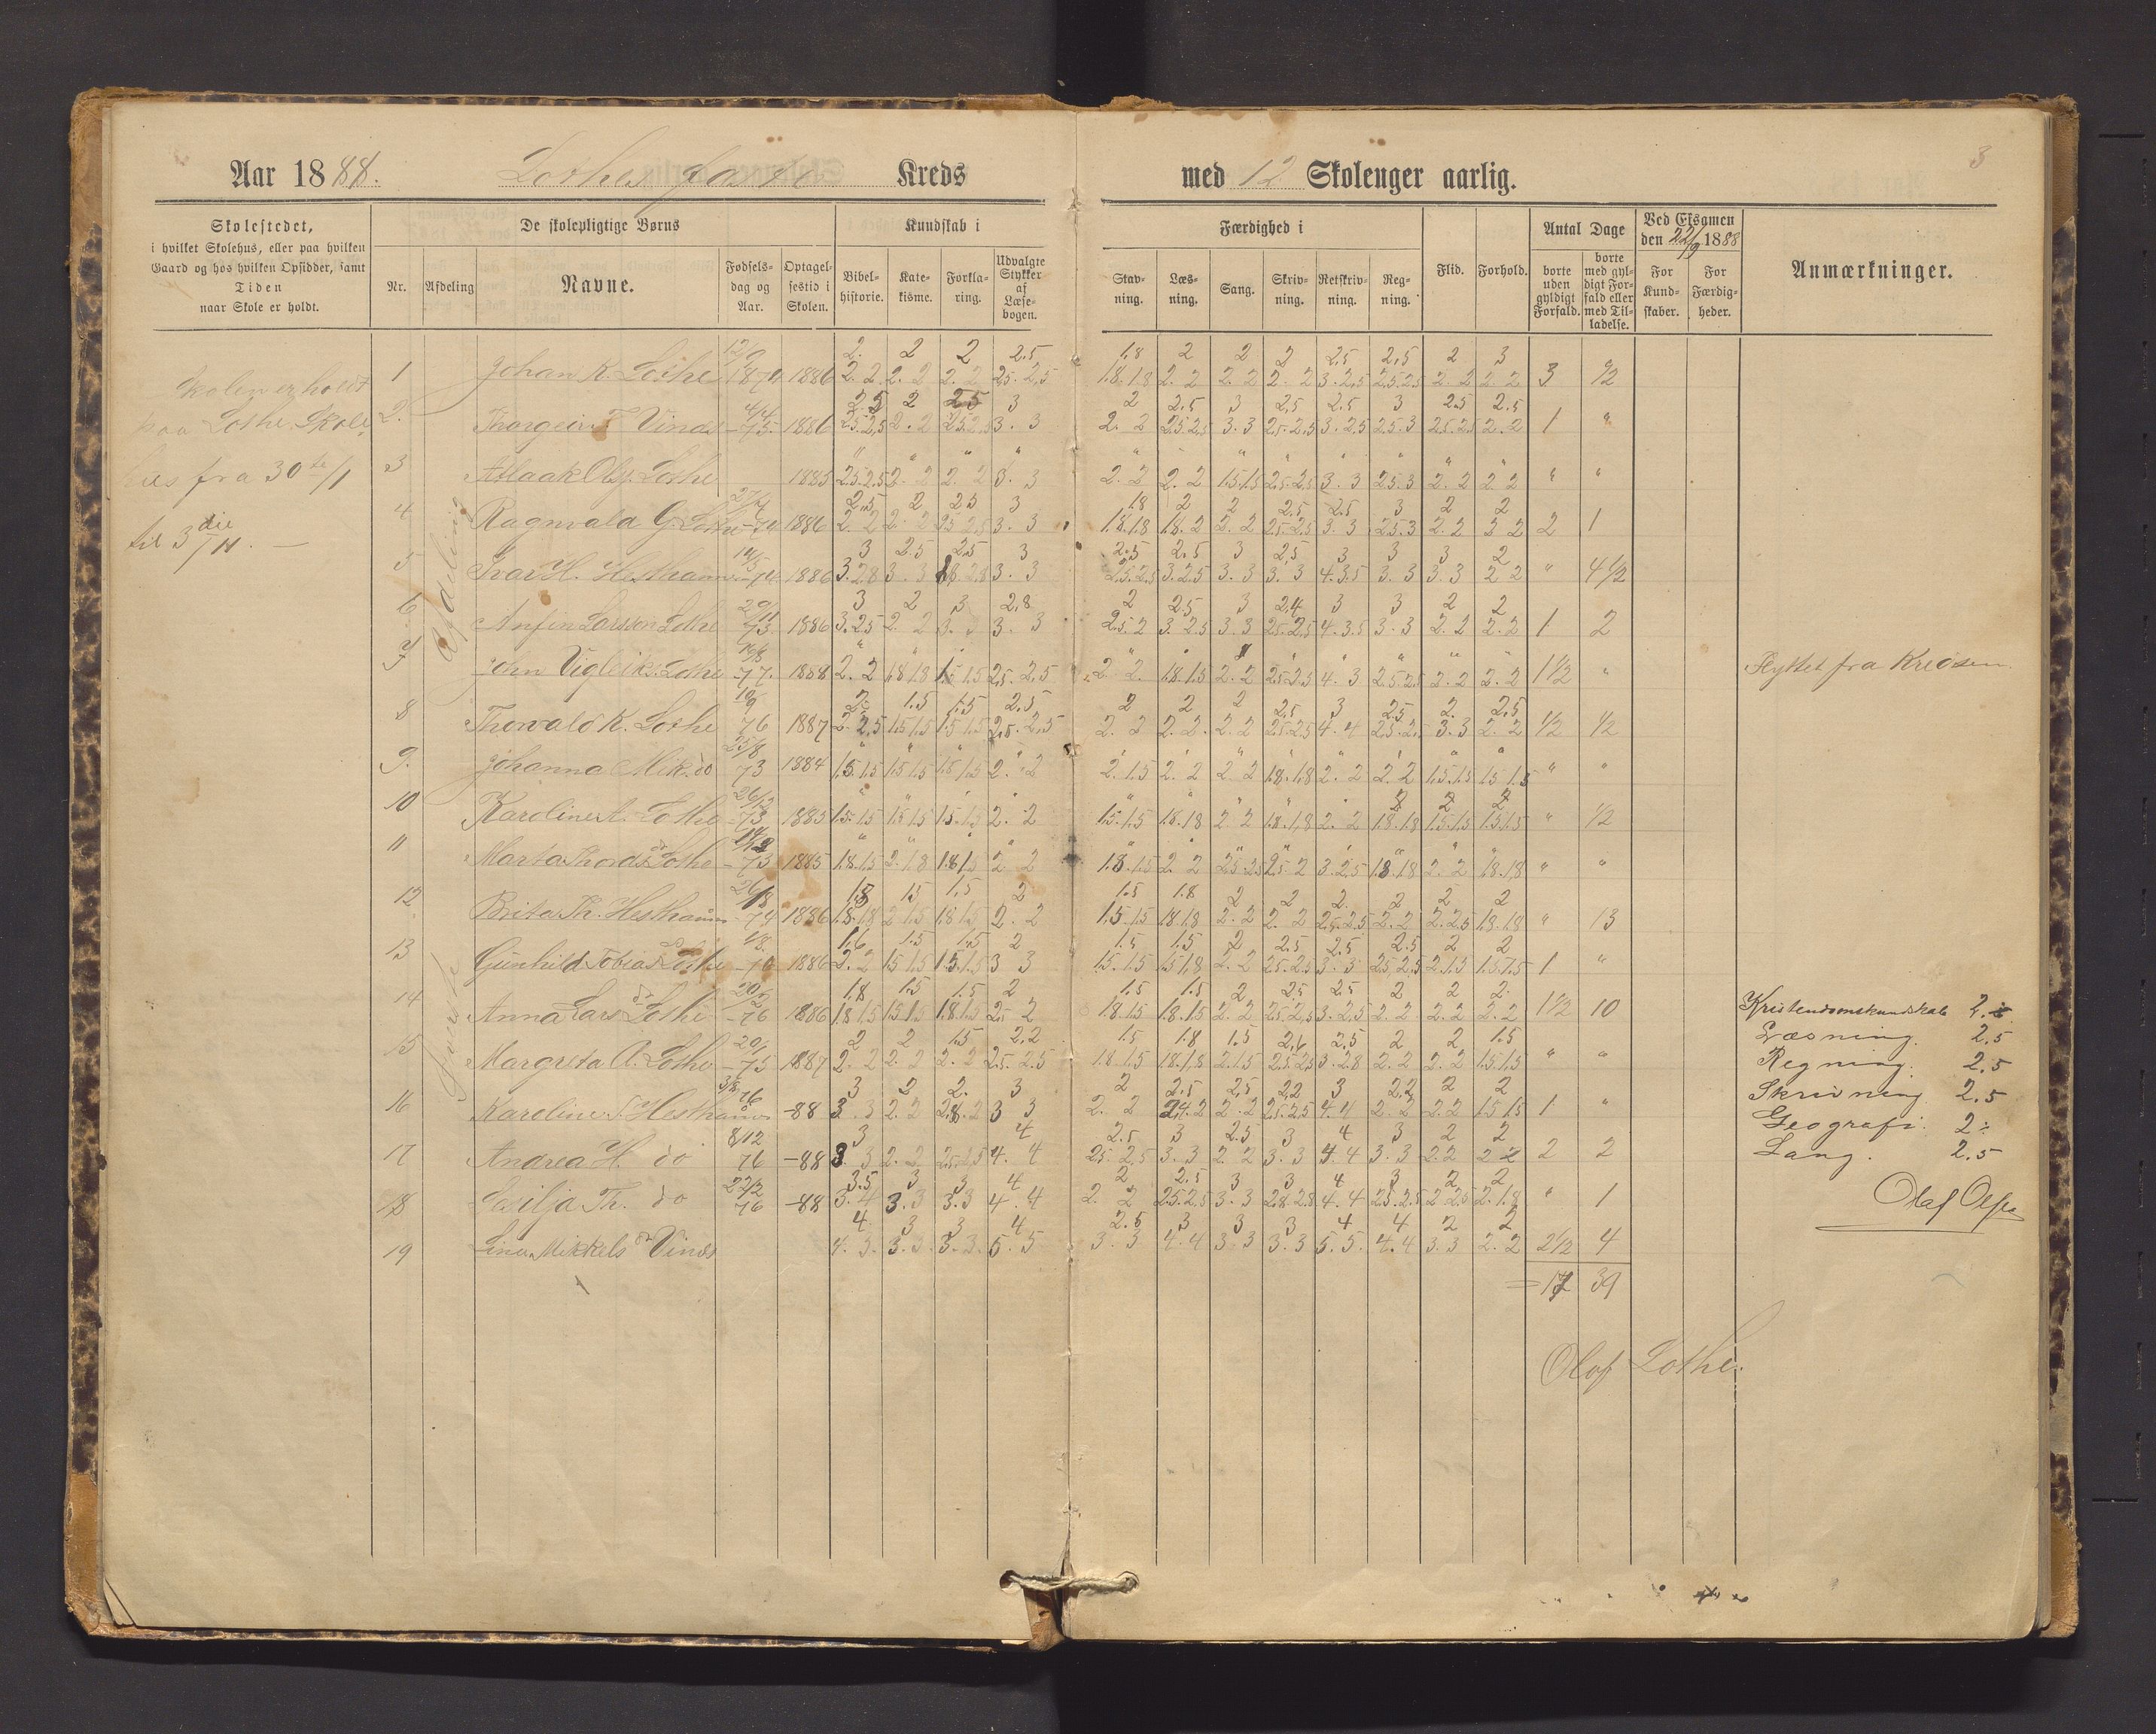 3
Aar 1888. Lothes faste Kreds med 12 Skoleuger aarlig.
Skolestedet, i hvilket Skolehus, eller paa hvilken Gaard og hos hvilken Opsidder, samt Tiden naar Skole er holdt.
De skolepligtige Børns
Nr. Afdeling Navne. Fødselsdag og Aar. Optagelsestid i Skolen.
Kundskab i
Bibelhistorie. Katekisme. Forklaring. Udvalgte Stykker af Læsebogen.
Færdighed i
Stavning. Læsning. Sang. Skrivning. Retskrivning. Regning. Flid. Forhold.
Antal Dage
borte uden gyldigt Forfald. borte med gyldigt Forfald eller med Tilladelse.
Ved Eksamen den 22/9 1888
For Kundskaber. For Færdigheder.
Anmærkninger.
Skolen er holdt
paa Lothe Skole
fra 30te/1
til 3die/11. —
Afdeling
1 Johan K. Lothe 12/9 1874 1886 2. 2 2 2.5 1.8 2 2 2 2.5 2.5 2 3
2. 2 2. 2 2. 2 2.5. 2.5 1.8. 1.8 2. 2 2. 2 2. 2 3. 2.5 2.5. 2.5 2. 2 2. 2 3 1/2
2. Thorgeir T. Vines 4/4 -75. 1886 2.5 2 2.5 3 2 2.5 3 2.5 2.5 3 2.5 2.5
2.5. 2.5 2. 2 2.5. 2.5 3. 3 2. 2 2.5. 2.5 3. 3 2.5. 2.5 3. 2.5 2.5. 3 2.5. 2.5 2. 2 1 "
3 Aslaak Olsf. Lothe 1885 2.5. 2.5 2. 2 2. 2 3. 3 2. 2 2. 2 1.5. 1.5 2.5. 2.5 3. 3 2.5. 3 2. 2 2. 2 " "
4 Ragnvald G. Lothe -74 1886 2.5 2 2.5 3 1.8 2 2 2.5 2.5 3 2 2
2. 2 2. 2 2.5. 2.5 3. 3 1.8. 1.8 1.8. 2 2. 2 2.5. 2.5 3. 3 2.5. 3 2. 2 2 2 2 1
5 Ivar H. Hesthamn 14/5 -74 1886 3 2.5 2.5 3 2.5 2.5 3 2.5 3 3 3 2
3. 2.8 3. 3 2.8 3. 3 2.5. 2.5 3. 2.5 3. 3 3. 3 4. 3.5 3. 3 3. 3 2 2 " 4 1/2
6 Anfin Larssen Lothe 29/11 73 1886 3 2 3 2.8 2 2.5 3 2.4 3 3 2 2
3. 2.5 2. 2 3. 3. 3 2.5. 2 3. 2.5 3. 3 2.5. 2.5 4. 3.5 3. 3 2. 2 2. 2 1 2
7 John Vigleiks. Lothe 16/8 -77. 1888 2. 2 1.8 1.8 1.5 1.5 2.5. 2.5 2. 2. 1.8. 1.5 2. 2 2.5. 2.5 4. 3 2.5. 2.5 2. 2 2. 2 1 1/2 " Flyttet fra
8 Thorvald K. Lothe 10/9 76 1887 2 1.5 1.5 2.5 2 2 2 2.5 3 2.5 2. 2.5
2. 2.5 1.5 1.5 1.5 1.5 2.5. 2.5 2. 2 2. 2. 2. 2 2.5. 2.5 4. 4 2.5. 2. 3. 3 2. 2 1/2 1/2
9. Johanna Mik. do 25/8 73 1884 1.5. 1.5 1.5 1.5 1.5 1.5 2. 2 2. 1.5 2. 2 2. 2 1.8. 1.8 2. 2 2. 2 1.5. 1.5 1.5 1.5 " "
10 Karoline A. Lothe 26/12 -73 1885 1.5. 1.5 1.5 1.5 1.5. 1.5 2. 2 1.5. 1.5 1.8. 1.8 2 2 1.8. 1.8 2. 2 1.8. 1.8 1.5. 1.5 1.5 1.5 " 1/2
11 Marta Thords dr Lothe -73 1885 1.8. 1.5 2. 1.8 1.8 1.5 2 2 1.8. 1.5 2. 2 2.5. 2.5 2.5. 2 3. 2.5 1.8. 1.8 2. 2 1.8. 1.8 " "
12 Brita Th. Hesthamn 26/8 -74 1886 1.8 1.5 1.5 2 1.5 1.8 2 2 2. 2 2 2
1.8. 1.8 2 1.5 1.8 1.5 2. 2 1.5. 1.5 1.8 1.8 2. 2 2. 2 2.5. 2.5 2. 2 2. 2.5 1.8. 1.8 " 13
13 Gunhild Tobias dr Lothe 1886 1.6 1.5 1.5 2 1.5 1.5 2 2.5 2.5 2.5 2 2
2. 2 1.5 1.5 1.5. 1.5 3 3 1.5. 1.5 1.5 1.8 2. 2 2.5. 2.5 3. 3 2.5 2.5 2. 1.5 1.5. 1.5 1 "
14 Anna Lars dr Lothe 20/2 -76 1886 1.8 1.5 1.5 2 1.5 1.5 2 2.5 2.5 2 2 2.
1.8 1.5 1.5 1.5 1.8. 1.5 2.5 2 1.8. 1.5 1.8. 1.5 2. 2 2.5. 2.5 3. 2.5 2. 2 2. 2 2. 2 1 1/2 10
15 Margreta A. Lothe 20/1 -75 1887 2 2 1.5 2.2 1.5 1.8 1.5 2.6 2.5 2 2 1.5
2. 2 2. 2 2. 2 2.5. 2.5 1.8 1.5 1.8. 1.8 2. 1.5 2.5. 2.5 3. 2.8 2. 2 2. 2 1.5 1.5 " "
16 Karoline T. Hesthamn 3/8 76 -88 3 2 2. 3 2 2.5 2.5 2.2 3 2.2 2 2
3. 3 2. 2 2.8. 2 3 3 2. 2 2.4. 2 2. 2 2.5. 2.5 4. 4 2. 2 2. 2 1.5 1.5 1 "
17 Andrea H. do 8/12 76 -88 3 4 2.5 3 2.5 3 4 3 2 2
3. 3 2. 2 2.5. 2.5 4. 4 2.5. 2.5 3. 3 2. 2 3. 3 4. 4 3. 3 2.2 2 2 2 2
18 Sesilja Th. do 22/2 76 -88 3.5 3 3 4 2 2.5 3 3 4 3 2 2
3. 4 3. 3 3. 3 4. 4 2. 2 2.5 2.5 3. 3 2.8. 2.8 4. 4 2.5. 2.5 2 2.5 2. 1.8 " 1
19 Lina Mikkels dr Vines 4. 3 3 4 2.5 3 3 3 4 4 2 2
4. 3. 3. 3. 3. 3. 5. 5 3. 3 4. 4 3. 3 3. 3 5. 5. 4. 4 3. 3 2. 2 2 1/2 4
= 17 39
Kristendomskundskab 2.
Læsning. 2.5
Regning. 2.5
Skrivning 2.5
Geografi. 2
Sang. 2.5
Olaf
Olof Lothe.